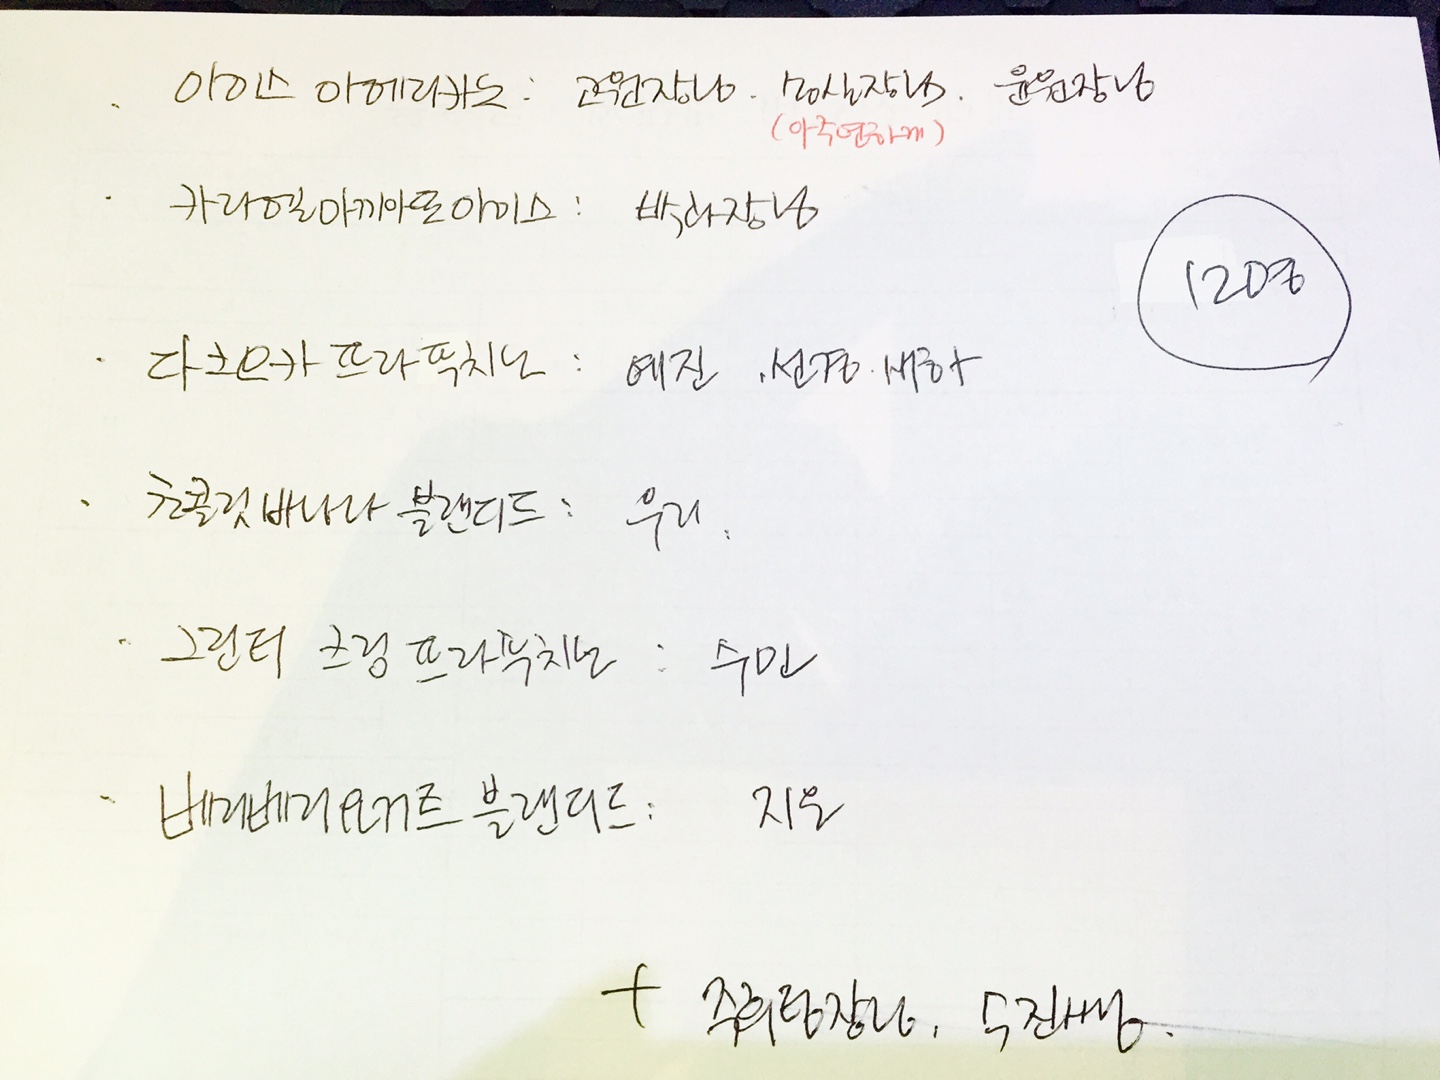 · 아이스 아메리카노 : 고원장님. 명실장님. 윤원장님
(아주연하게)
· 카라멜마끼아또아이스 : 박차장님
12명
· 다크모카 프라푹치노 : 예진 . 선경. 세하
· 초콜릿바나나 블랜디드 : 우리.
· 그린티 크림 프라푹치노 : 수민
· 베리베리요거트 블랜디드 : 지우
+ 주희팀장님. 수진쌤님.